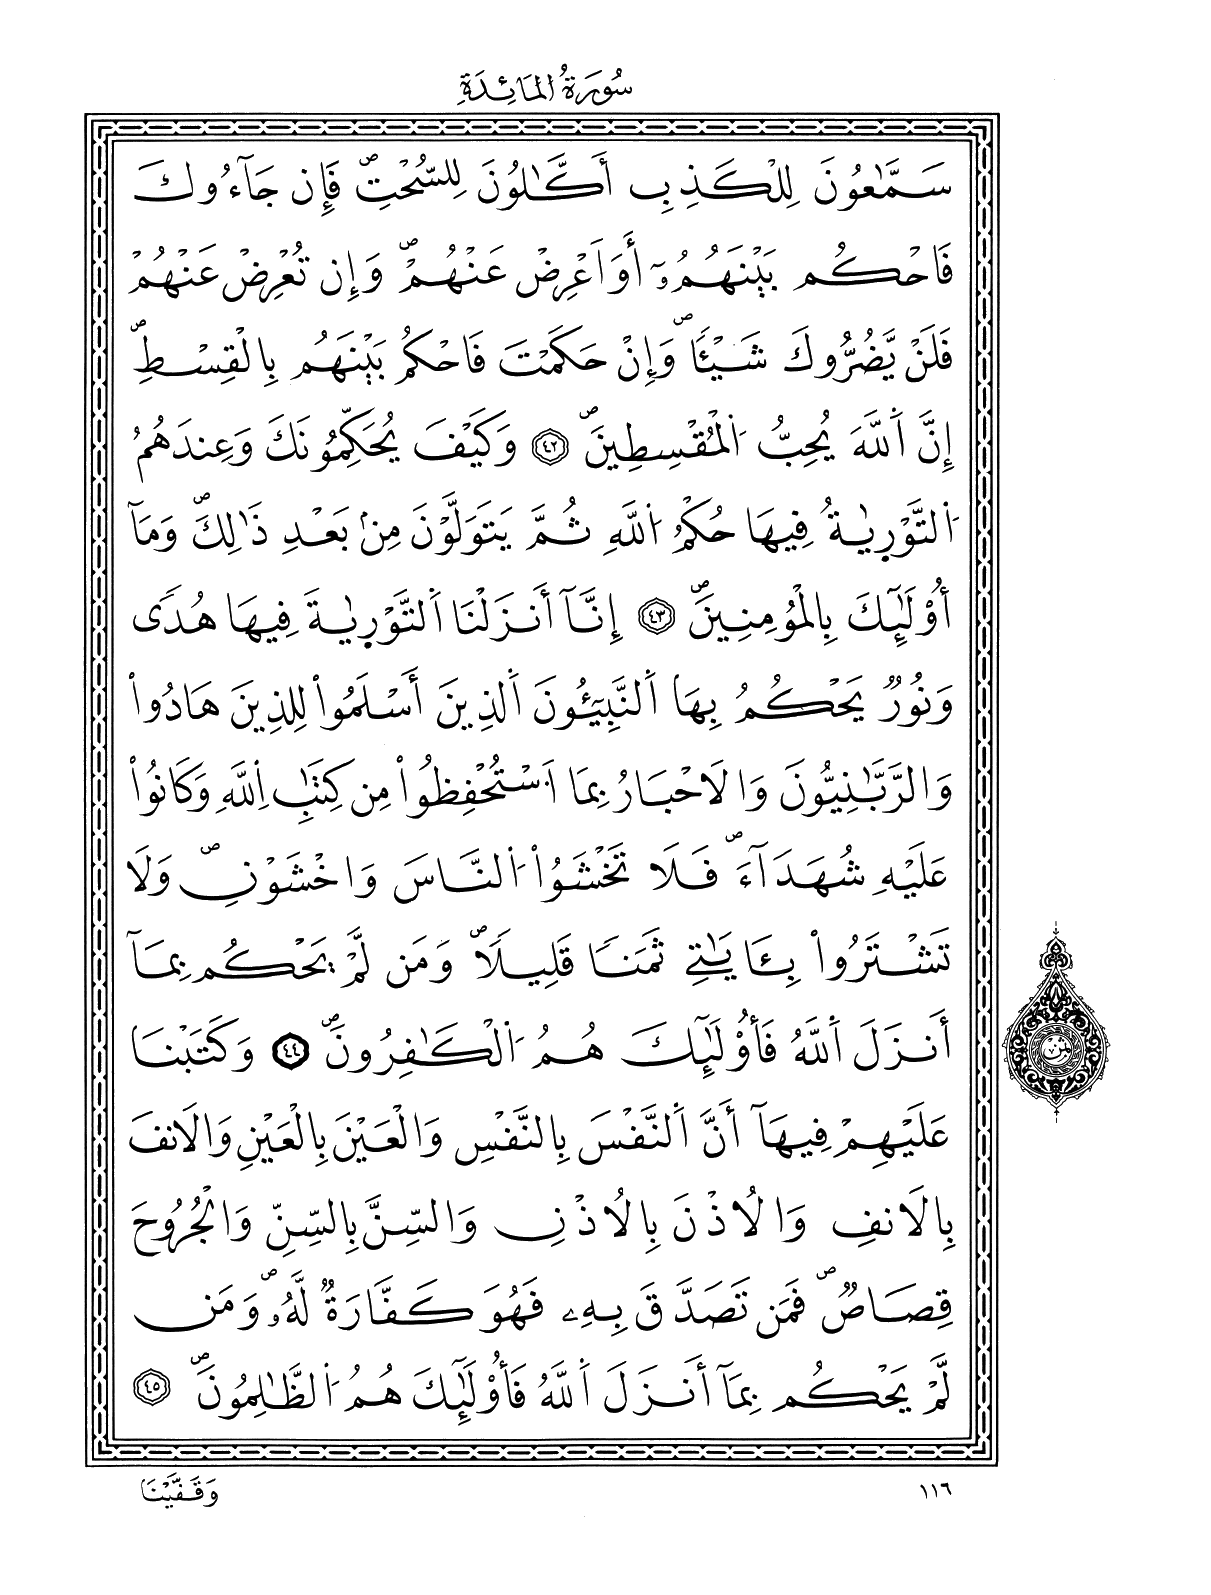 سُورَةُ المَائِدَةِ
سَمَّٰعُونَ لِلْكَذِبِ أَكَّٰلُونَ لِلسُّحْتِۖ فَإِن جَآءُوكَ
فَاحْكُم بَيْنَهُمُۥٓ أَوَ اَعْرِضْ عَنْهُمْۖ وَإِن تُعْرِضْ عَنْهُمْ
فَلَنْ يَّضُرُّوكَ شَيْـٔاٗۖ وَإِنْ حَكَمْتَ فَاحْكُم بَيْنَهُم بِالْقِسْطِۖ
إِنَّ اَ۬للَّهَ يُحِبُّ اُ۬لْمُقْسِطِينَۖ ٤٢ وَكَيْفَ يُحَكِّمُونَكَ وَعِندَهُمُ
اُ۬لتَّوْر۪يٰةُ فِيهَا حُكْمُ اُ۬للَّهِ ثُمَّ يَتَوَلَّوْنَ مِنۢ بَعْدِ ذَٰلِكَۖ وَمَآ
أُوْلَٰٓئِكَ بِالْمُومِنِينَۖ ٤٣ إِنَّآ أَنزَلْنَا اَ۬لتَّوْر۪يٰةَ فِيهَا هُدٗى
وَنُورٞ يَحْكُمُ بِهَا اَ۬لنَّبِيٓـُٔونَ اَ۬لذِينَ أَسْلَمُواْ لِلذِينَ هَادُواْ
وَالرَّبَّٰنِيُّونَ وَالَاحْبَارُ بِمَا اَ۟سْتُحْفِظُواْ مِن كِتَٰبِ اِ۬للَّهِ وَكَانُواْ
عَلَيْهِ شُهَدَآءَۖ فَلَا تَخْشَوُاْ اُ۬لنَّاسَ وَاخْشَوْنِۖ وَلَا
تَشْتَرُواْ بِـَٔايَٰتِے ثَمَناٗ قَلِيلاٗۖ وَمَن لَّمْ يَحْكُم بِمَآ
أَنزَلَ اَ۬للَّهُ فَأُوْلَٰٓئِكَ هُمُ اُ۬لْكَٰفِرُونَۖ ٤٤ وَكَتَبْنَا
عَلَيْهِمْ فِيهَآ أَنَّ اَ۬لنَّفْسَ بِالنَّفْسِ وَالْعَيْنَ بِالْعَيْنِ وَالَانفَ
بِالَانفِ وَالُاذْنَ بِالُاذْنِ وَالسِّنَّ بِالسِّنِّ وَالْجُرُوحَ
قِصَاصٞۖ فَمَن تَصَدَّقَ بِهِۦ فَهُوَ كَفَّارَةٞ لَّهُۥۖ وَمَن
لَّمْ يَحْكُم بِمَآ أَنزَلَ اَ۬للَّهُ فَأُوْلَٰٓئِكَ هُمُ اُ۬لظَّٰلِمُونَۖ ٤٥
ثمن
وَقَفَّيْنَا
١١٦